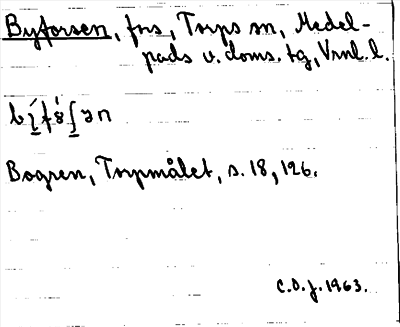 Byforsen, frs, Torps sn, Medel-
pads v. doms. tg, Vrnl. l.
Bogren, Torpmålet, s. 18, 126.
C.O.J. 1963.